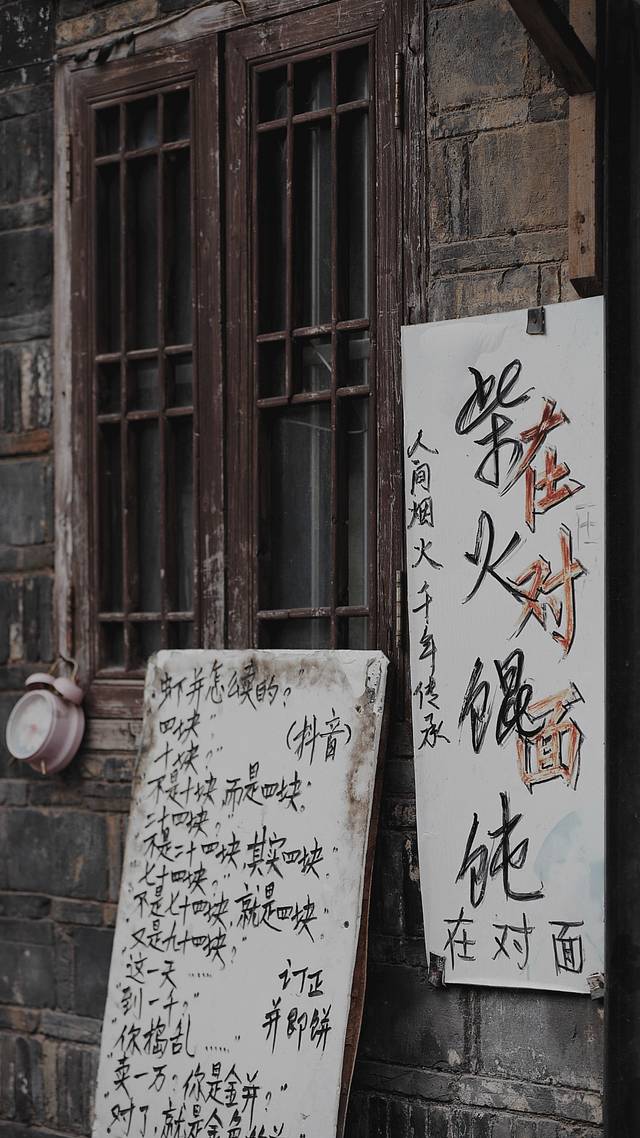 柴火馄饨
在对面
人间烟火千年传承
在对面
"虾并怎么卖的?"
"四块"
(抖音)
"十块?"
"不是十块,而是四块."
"二十四块?"
"不是二十四块,其实四块."
"七十四块?"
"不是七十四块,就是四块"
"又是九十四块?"
"这一天……
"到一千?"
"你捣乱……"
订正
并即饼
"卖一万?你是金并?"
"对了,就是金色的并"